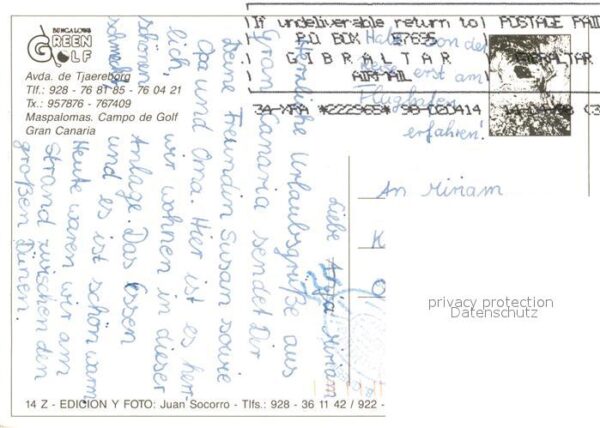 BUNGALOWS
GREEN
GOLF
Avda. de Tjaereborg
Tlf.: 928 - 76 81 85 - 76 04 21
Tx.: 957876 - 767409
Maspalomas. Campo de Golf
Gran Canaria
If undeliverable return to
P.O BOX 57695
GIBRALTAR
AIRMAIL
POSTAGE PAID
GIBRALTAR
34-XPA *222965* 98-020414
Hab von der
erst am
Flughafen
erfahren!
Liebe Miriam
Herzliche Urlaubsgrüße aus
Gran Canaria sendet Dir
Deine Freundin Susam sowie
Opa und Oma. Hier ist es herr-
lich, wir wohnen in dieser
schönen Anlage. Das Essen
schmeckt und es ist schön warm
Heute waren wir am
Strand zwischen den
großen Dünen.
An Miriam
K
privacy protection
Datenschutz
14 Z - EDICION Y FOTO: Juan Socorro - Tlfs.: 928 - 36 11 42 / 922 -